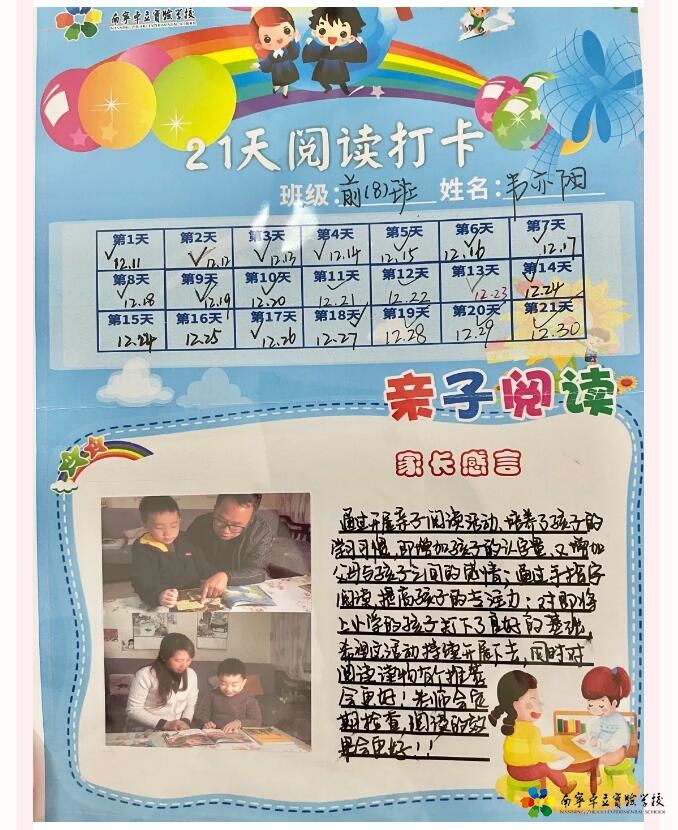 南宁卓立实验学校
NANNING ZHUOLI EXPERIMENTAL SCHOOL
21天阅读打卡
班级:前(8)班 姓名:韦亦阳
第1天 第2天 第3天 第4天 第5天 第6天 第7天
✓12.11 ✓12.12 ✓12.13 ✓12.14 ✓12.15 ✓12.16 ✓12.17
第8天 第9天 第10天 第11天 第12天 第13天 第14天
✓12.18 ✓12.19 ✓12.20 ✓12.21 ✓12.22 ✓12.23 ✓12.24
第15天 第16天 第17天 第18天 第19天 第20天 第21天
12.24 12.25 ✓12.26 ✓12.27 ✓12.28 ✓12.29 ✓12.30
亲子阅读
家长感言
通过开展亲子阅读活动、培养了孩子的
学习习惯,即增加孩子的认字量,又增加
父母与孩子之间的感情;通过手指字
阅读,提高孩子的专注力;对即将
上小学的孩子打下了良好的基础,
希望这活动持续开展下去,同时对
阅读读物有个推荐
会更好!老师会定
期检查,阅读的效
果会更好!!
南宁卓立实验学校
NANNING ZHUOLI EXPERIMENTAL SCHOOL